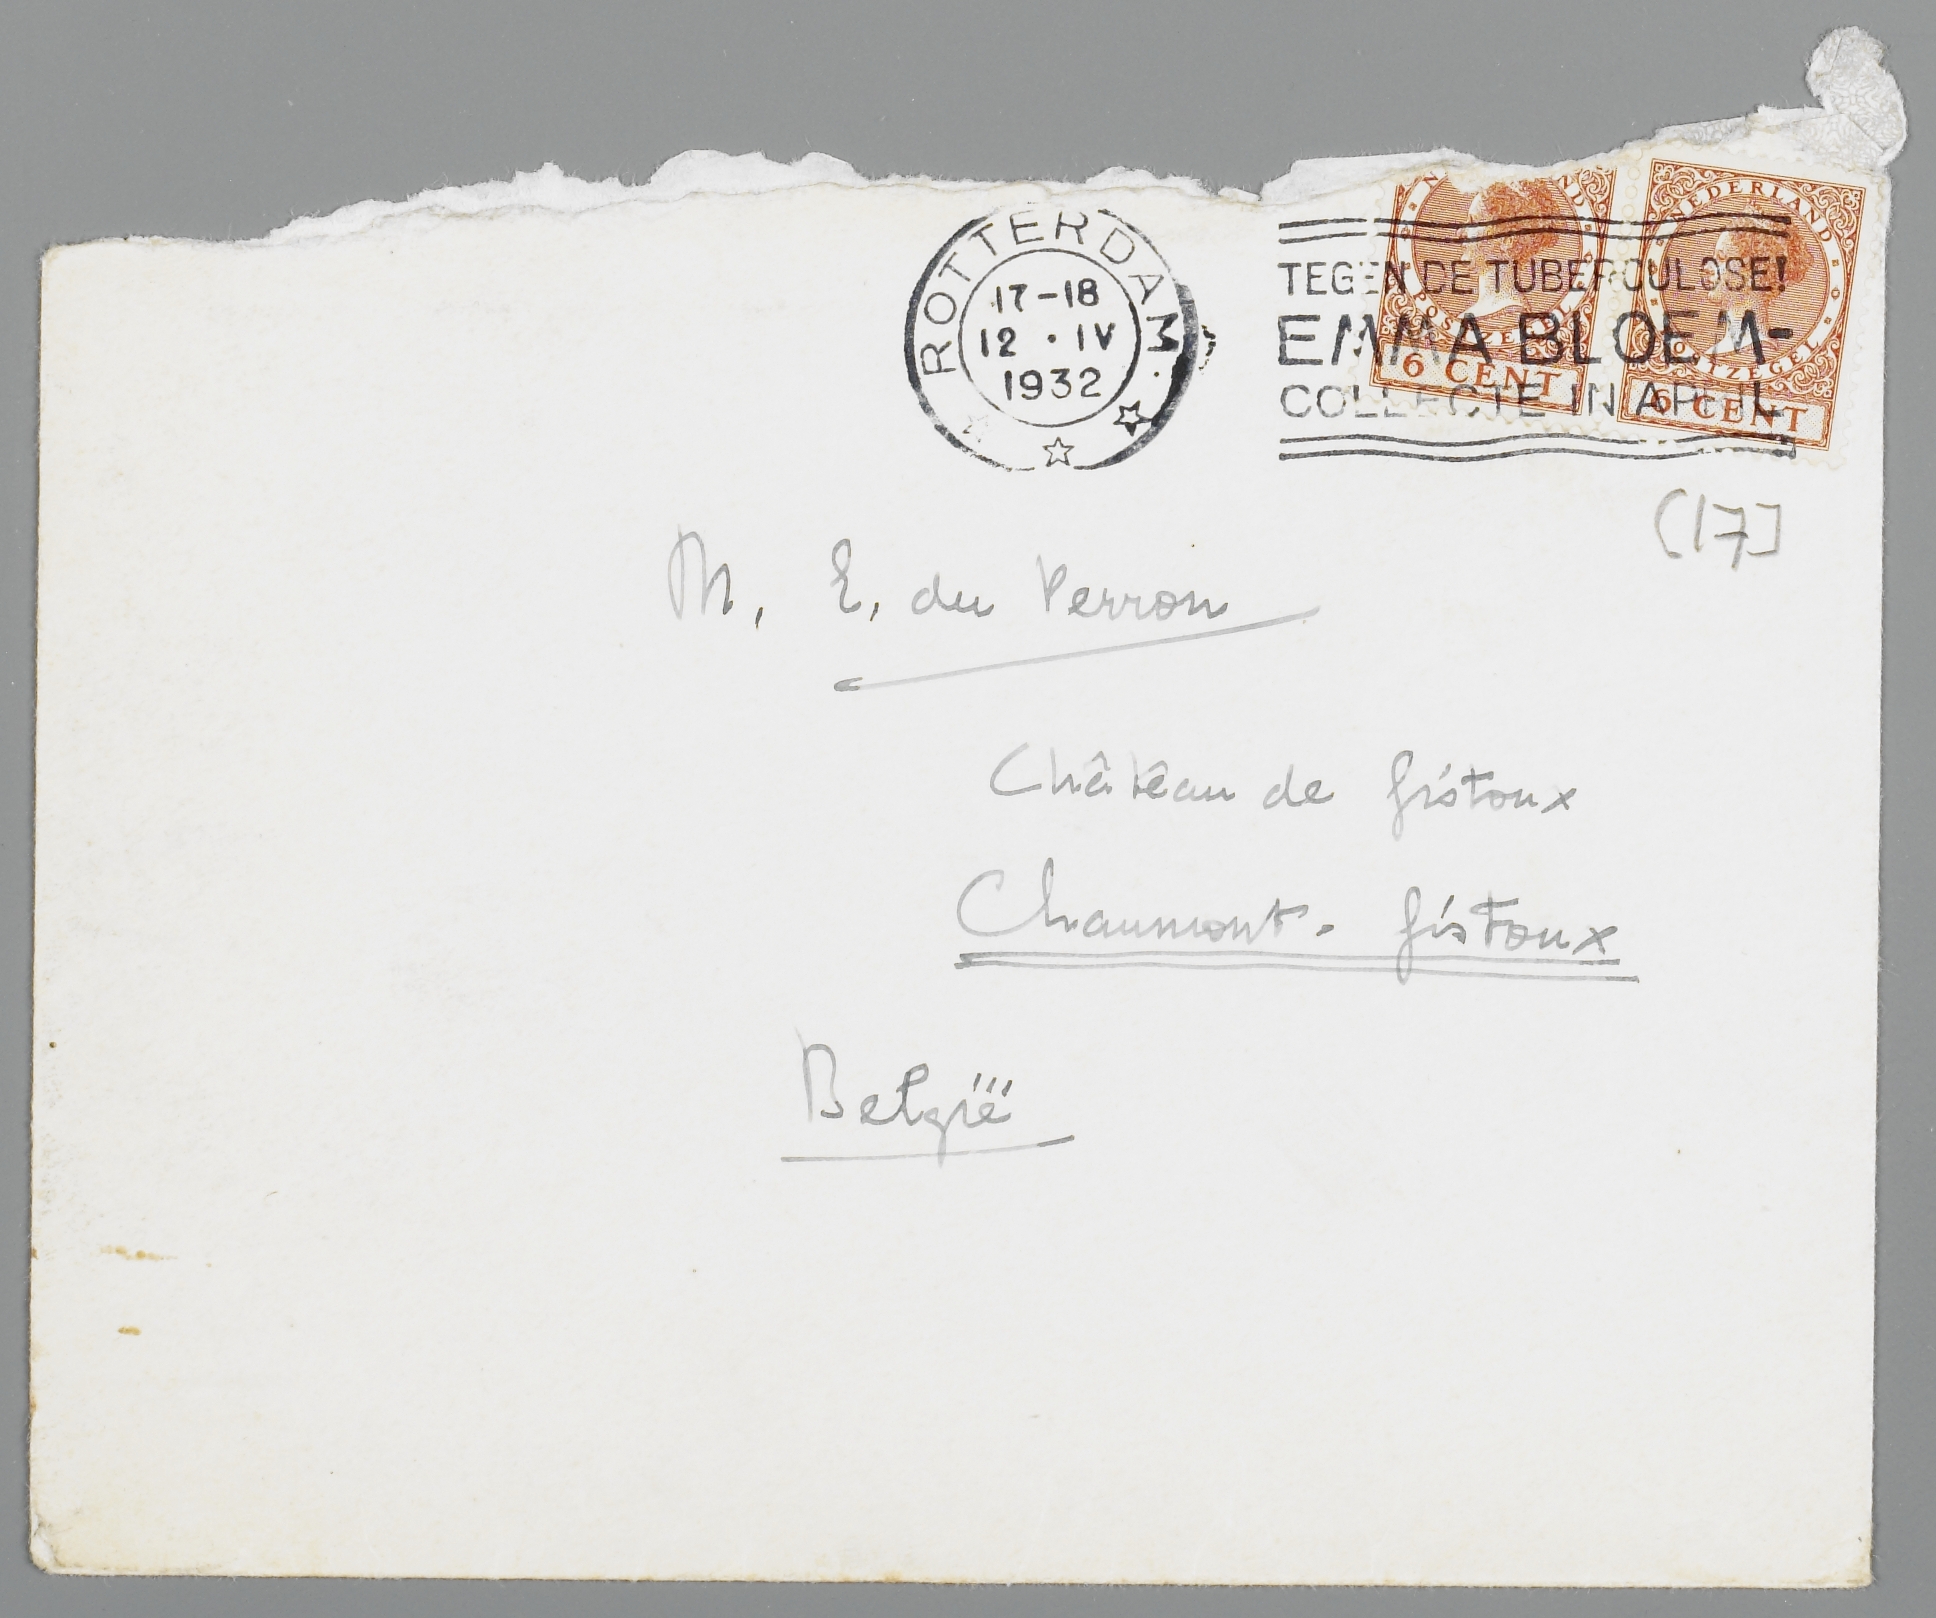 ROTTERDAM
17-18
12 · IV
1932
TEGEN DE TUBERCULOSE!
EMMA BLOEM-
COLLECTE IN APRIL
NEDERLAND
POSTZEGEL
6 CENT
6 CENT
[17]
M. E. du Perron
Château de Gistoux
Chaumont-Gistoux
België